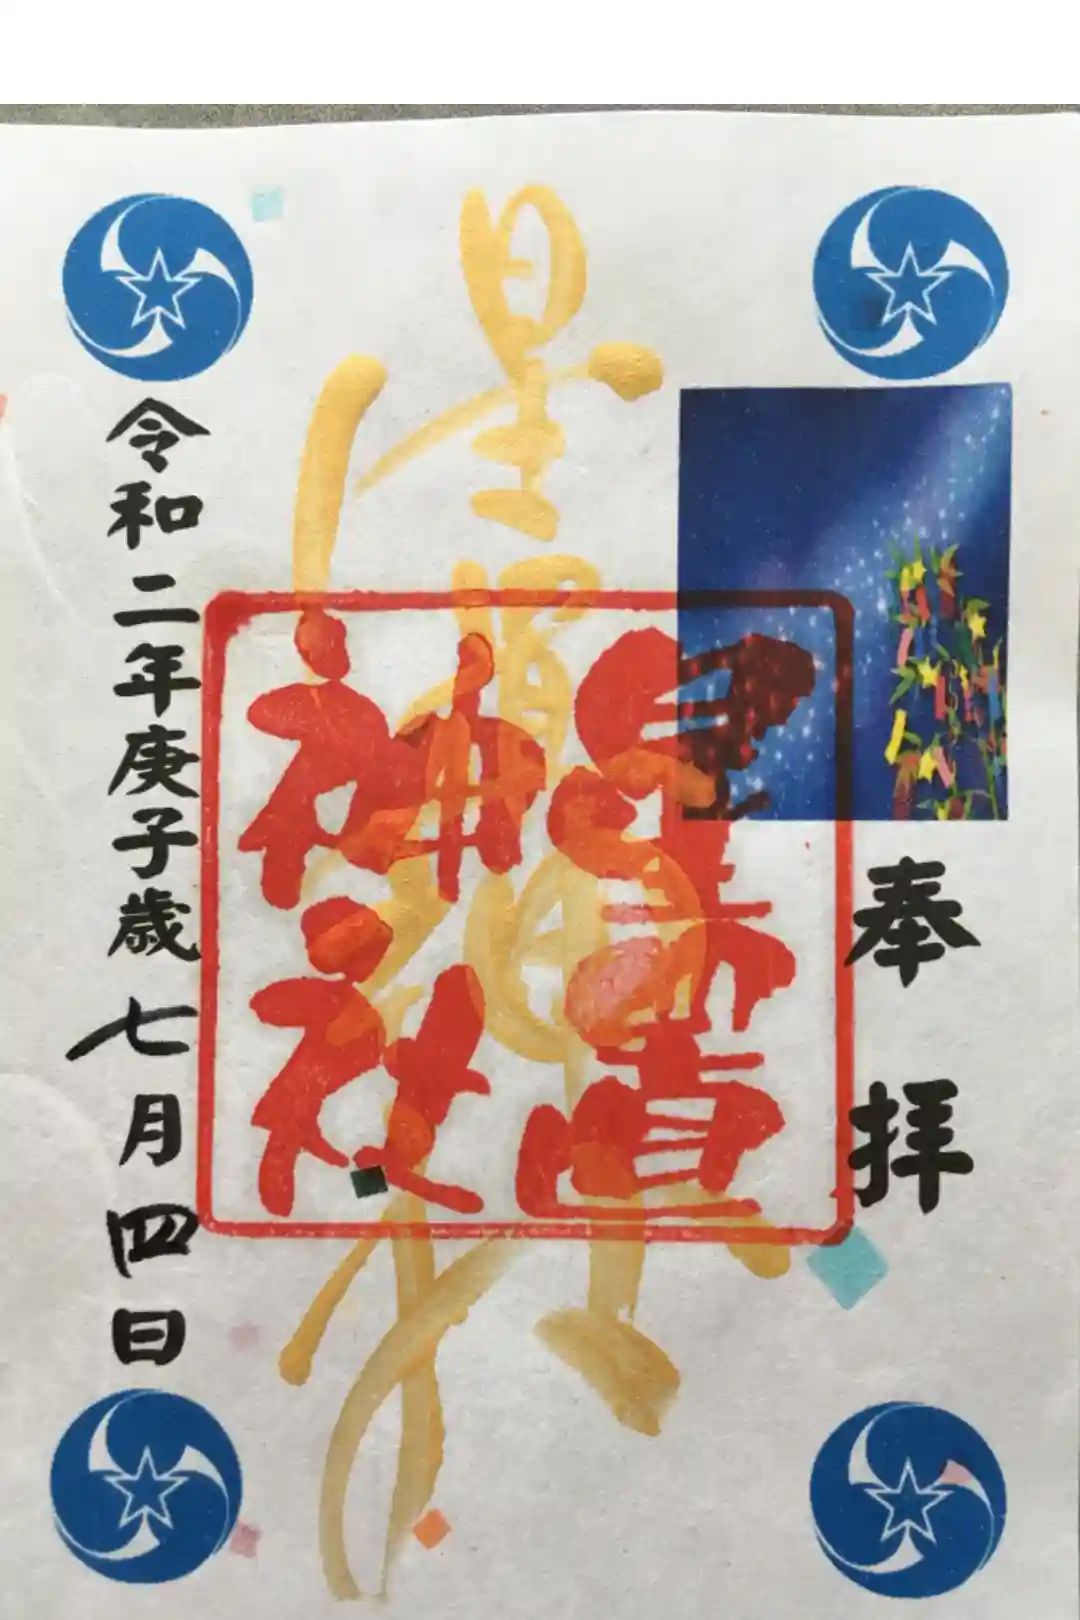 奉拝
星置
神社
令和二年庚子歳七月四日